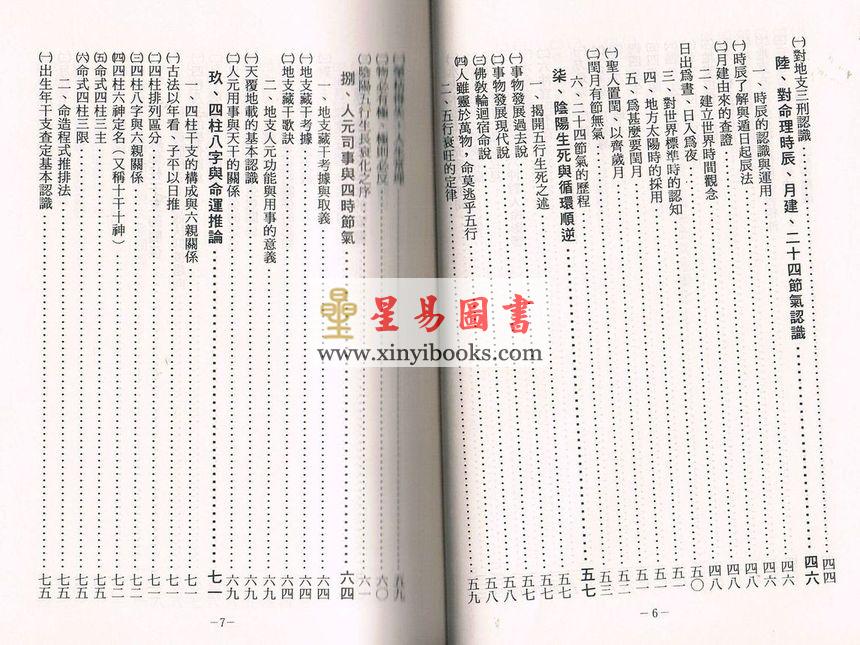 ㈠對地支三刑認識 四四
陸、對命理時辰、月建、二十四節氣認識 四六
一、時辰的認識與運用 四六
㈠時辰了解與遁日起辰法 四六
㈡月建由來的查證 四八
二、建立世界時間觀念 四八
日出爲晝、日入爲夜 四八
三、對世界標準時的認知 五〇
四、地方太陽時的採用 五一
五、爲甚麼要閏月 五一
㈠聖人置閏、以齊歲月 五二
㈡閏月有節無氣 五二
六、二十四節氣的歷程 五三
柒、陰陽生死與循環順逆 五七
一、揭開五行生死之述 五七
㈠事物發展過去說 五七
㈡事物發展現代說 五七
㈢佛教輪迴宿命說 五八
㈣人雖靈於萬物，命莫逃乎五行 五九
二、五行衰旺的定律 五九
－6－
人生常理 五九
㈡物必有極，極則必反 六〇
㈢陰陽五行生長衰化之序 六一
捌、人元司事與四時節氣 六四
一、地支藏干考據與取義 六四
㈠地支藏干考據 六四
㈡地支藏干歌訣 六四
二、地支人元功能與用事的意義 六九
㈠天覆地載的基本認識 六九
㈡人元用事與天干的關係 六九
玖、四柱八字與命運推論 七一
一、四柱干支的構成與六親關係 七一
㈠古法以年看、子平以日推 七一
㈡四柱排列區分 七一
㈢四柱八字與六親關係 七二
㈣四柱六神定名（又稱十干十神） 七二
㈤命式四柱三主 七五
㈥命式四柱三限 七五
二、命造程式推排法 七五
㈠出生年干支查定基本認識 七五
－7－
星易圖書
www.xinyibooks.com